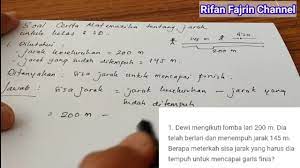 Rifan Fajrin Channel
Soal Cerita Matematika tentang jarak
untuk kelas 2 SD.
1. Diketahui :
jarak keseluruhan = 200 m
jarak yang sudah ditempuh = 145 m.
200 m
Ditanyakan : Sisa jarak untuk mencapai finish.
Jawab : Sisa jarak = jarak keseluruhan - jarak yang
sudah ditempuh
= 200 m -
1. Dewi mengikuti lomba lari 200 m. Dia
telah berlari dan menempuh jarak 145 m.
Berapa meterkah sisa jarak yang harus dia
tempuh untuk mencapai garis finis?